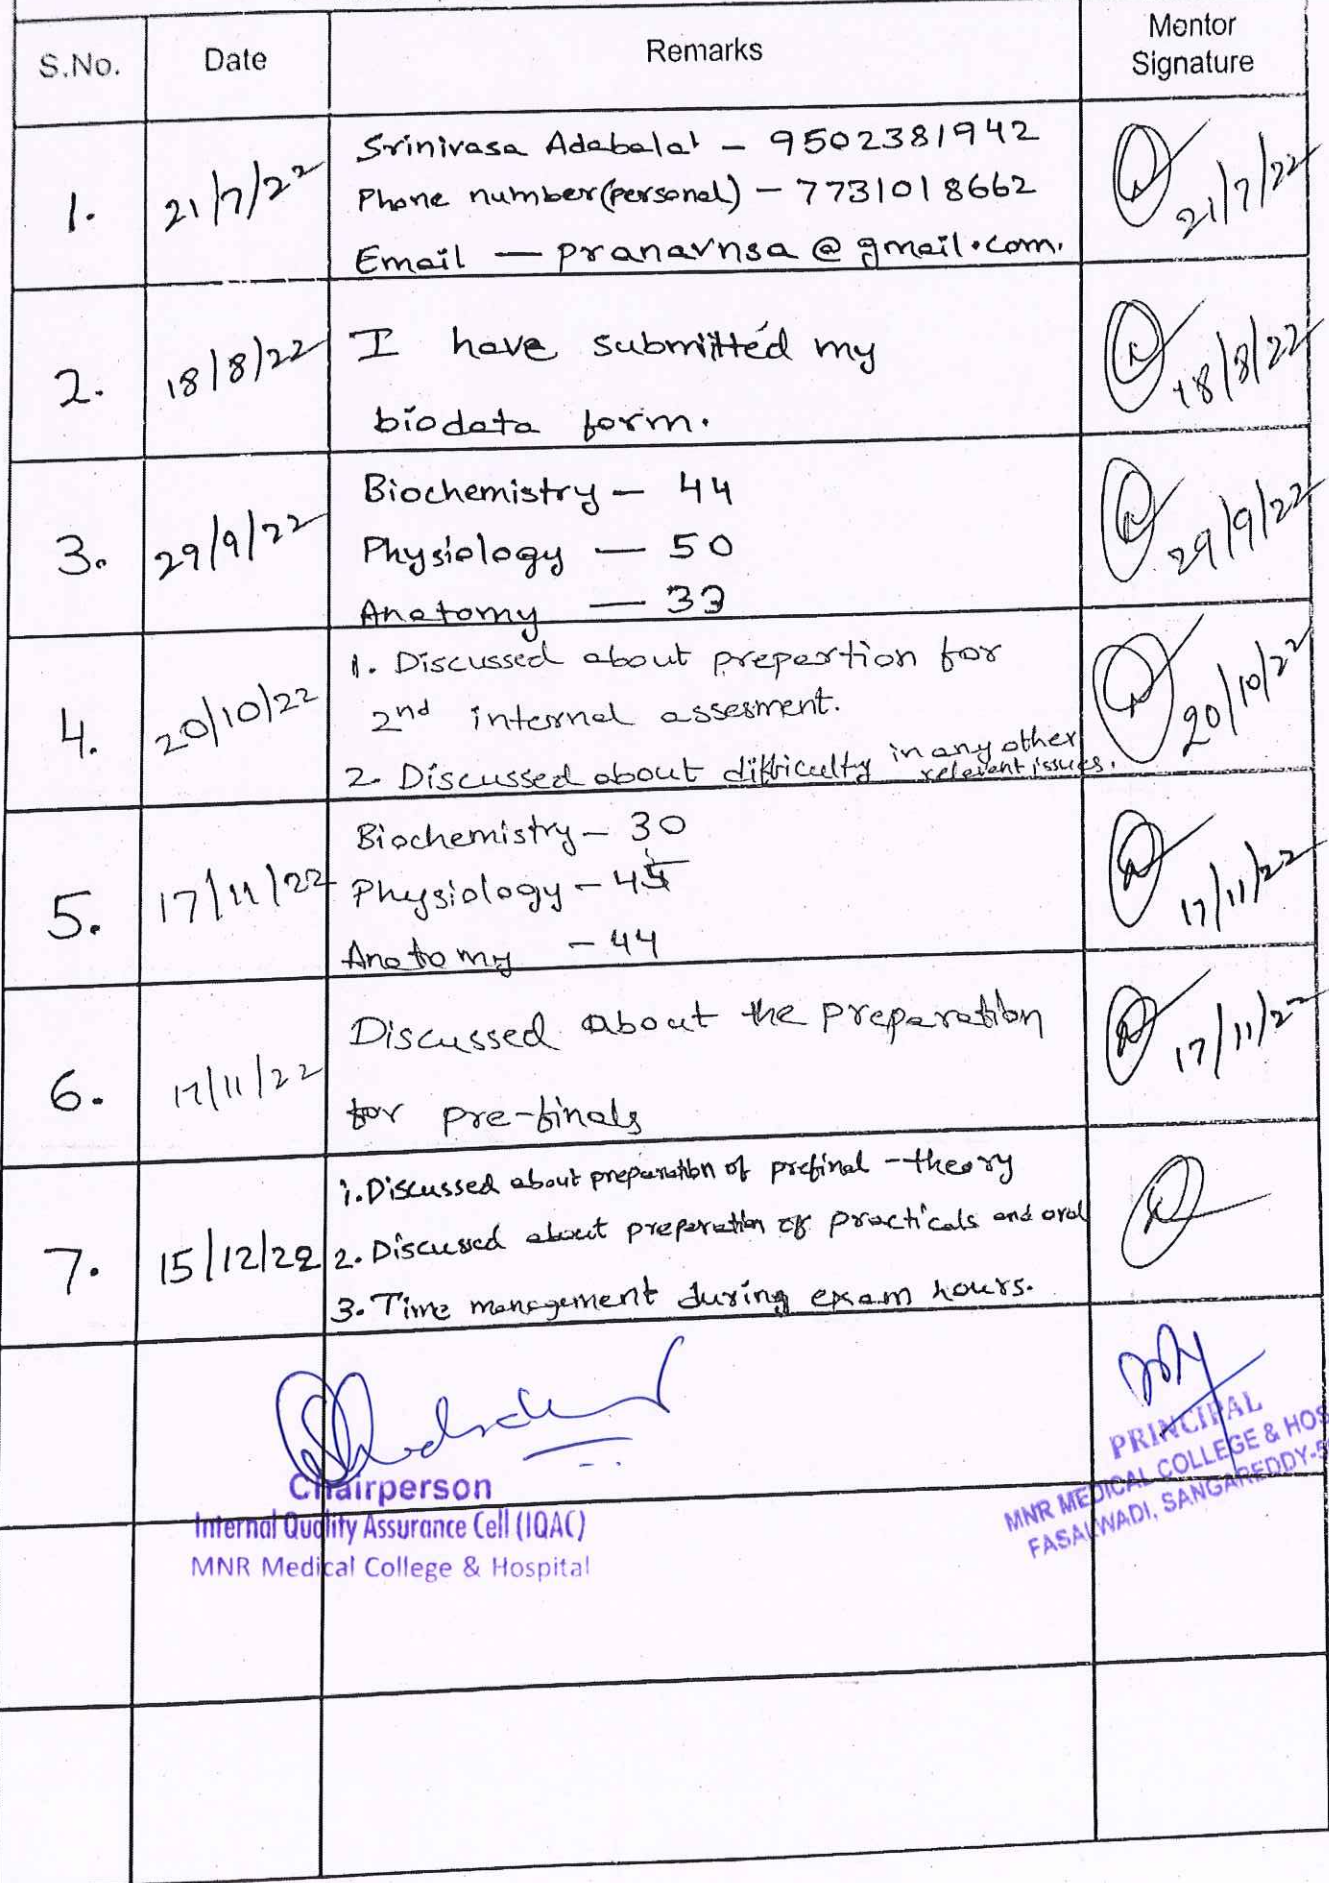 S.No. Date Remarks Mentor Signature
1. 21/7/22 Srinivasa Adabala - 9502381942 21/7/22
Phone number(personal) - 7731018662
Email - pranavnsa@gmail.com.
2. 18/8/22 I have submitted my 18/8/22
biodata form.
3. 29/9/22 Biochemistry - 44 29/9/22
Physiology - 50
Anatomy - 33
4. 20/10/22 1. Discussed about prepartion for 20/10/22
2nd internal assesment.
2. Discussed about difficulty in any other
relevent issues.
5. 17/11/22 Biochemistry - 30 17/11/22
Physiology - 45
Anatomy - 44
6. 17/11/22 Discussed about the preparation 17/11/22
for pre-finals
7. 15/12/22 1. Discussed about preparation of prefinal - theory
2. Discussed about preperation of practicals and oral
3. Time management during exam hours.
Chairperson
Internal Quality Assurance Cell (IQAC)
MNR Medical College & Hospital
PRINCIPAL
MNR MEDICAL COLLEGE & HOS
FASALWADI, SANGAREDDY-5